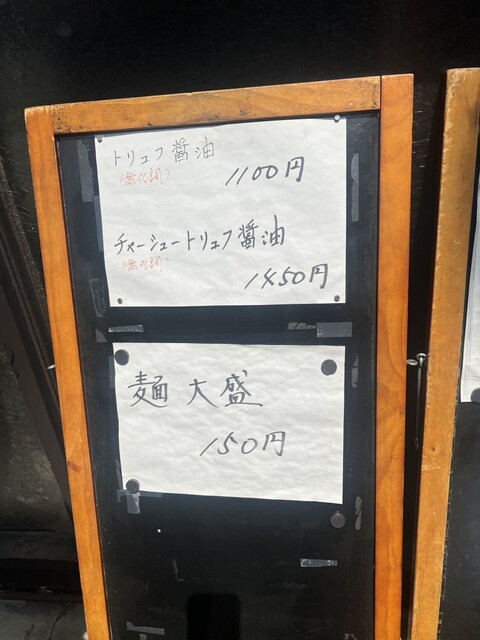 トリュフ醤油
(無化調)
1100円
チャーシュートリュフ醤油
(無化調)
1450円
麺 大盛
150円